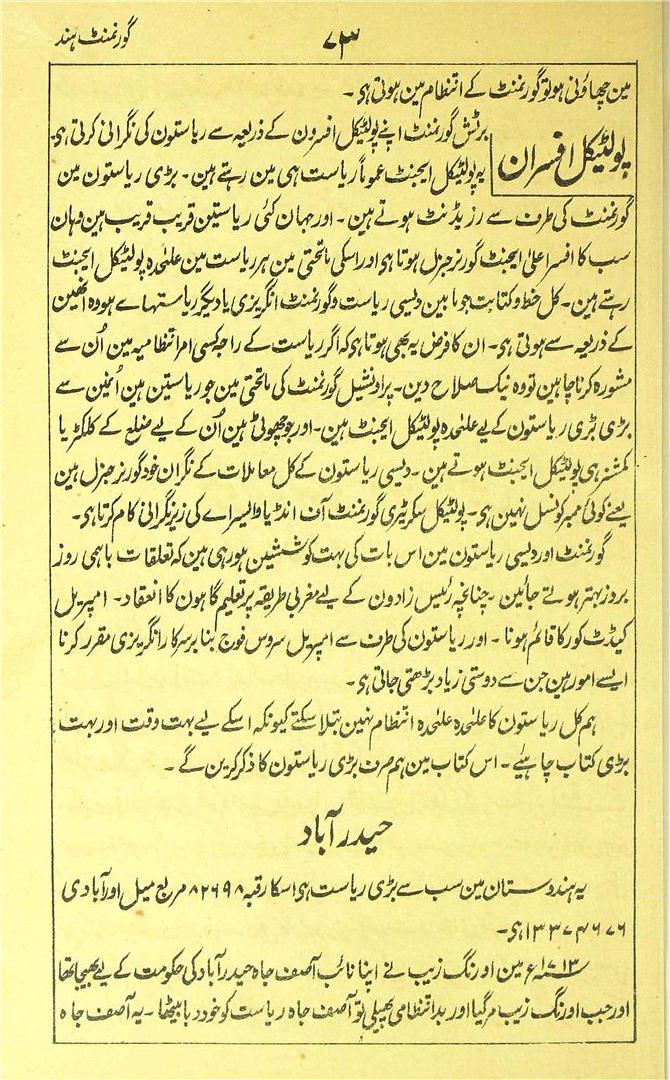 گورنمنٹ ہند
۷۳
مین چھاؤنی ہو تو گورنمنٹ کے انتظام مین ہوتی ہی ۔
پولٹیکل افسران
برٹش گورنمنٹ اپنے پولٹیکل افسرون کے ذریعہ سے ریاستون کی نگرانی کرتی ہی
یہ پولٹیکل ایجنٹ عموماً ریاست ہی مین رہتے ہین ۔ بڑی ریاستون مین
گورنمنٹ کی طرف سے رزیڈنٹ ہوتے ہین ۔ اور جہان کئی ریاستین قریب قریب ہین وہان
سب کا افسر اعلیٰ ایجنٹ گورنر جنرل ہوتا ہی اور اسکی ماتحتی مین ہر ریاست مین علٰحدہ پولٹیکل ایجنٹ
رہتے ہین ۔ کل خط و کتابت جو مابین دیسی ریاست و گورنمنٹ انگریزی یا دیگر ریاستہاے ہو وہ انھین
کے ذریعہ سے ہوتی ہی ۔ ان کا فرض یہ بھی ہوتا ہی کہ اگر ریاست کے راجہ کسی امر انتظامیہ مین اُن سے
مشورہ کرنا چاہین تو وہ نیک صلاح دین ۔ پراونشیل گورنمنٹ کی ماتحتی مین جو ریاستین ہین اُنمین سے
بڑی بڑی ریاستون کے لیے علٰحدہ پولٹیکل ایجنٹ ہین ۔ اور جو چھوٹی ہین اُن کے لیے ضلع کے کلکٹر یا
کمشنر ہی پولٹیکل ایجنٹ ہوتے ہین ۔ دیسی ریاستون کے کل معاملات کے نگران خود گورنر جنرل ہین
یعنے کوئی ممبر کونسل نہین ہی ۔ پولٹیکل سکرٹیری گورنمنٹ آف انڈیا وائسراے کی زیر نگرانی کام کرتا ہی ۔
گورنمنٹ اور دیسی ریاستون مین اس بات کی بہت کوششین ہو رہی ہین کہ تعلقات باہمی روز
بروز بہتر ہوتے جائین ۔ چنانچہ رئیس زادون کے لیے مغربی طریقہ پر تعلیم گاہون کا انعقاد ۔ امپیریل
کیڈٹ کور کا قائم ہونا ۔ اور ریاستون کی طرف سے امپریل سروس فوج بنا بر سرکار انگریزی مقرر کرنا
ایسے امور ہین جن سے دوستی زیاد بڑھتی جاتی ہی ۔
ہم کل ریاستون کا علٰحدہ علٰحدہ انتظام نہین بتلا سکتے کیونکہ اسکے لیے بہت وقت اور بہت
بڑی کتاب چاہیئے ۔ اس کتاب مین ہم صرف بڑی ریاستون کا ذکر کرین گے ۔
حیدر آباد
یہ ہندوستان مین سب سے بڑی ریاست ہی اسکا رقبہ ۸۲۶۹۸ مربع میل اور آبادی
۱۳۳۷۴۶۷۶ ہی ۔
۱۷۱۳ء مین اورنگ زیب نے اپنا نائب آصف جاہ حیدر آباد کی حکومت کے لیے بھیجا تھا
اور جب اورنگ زیب مر گیا اور بد انتظامی پھیلی تو آصف جاہ ریاست کو خود دبا بیٹھا ۔ یہ آصف جاہ